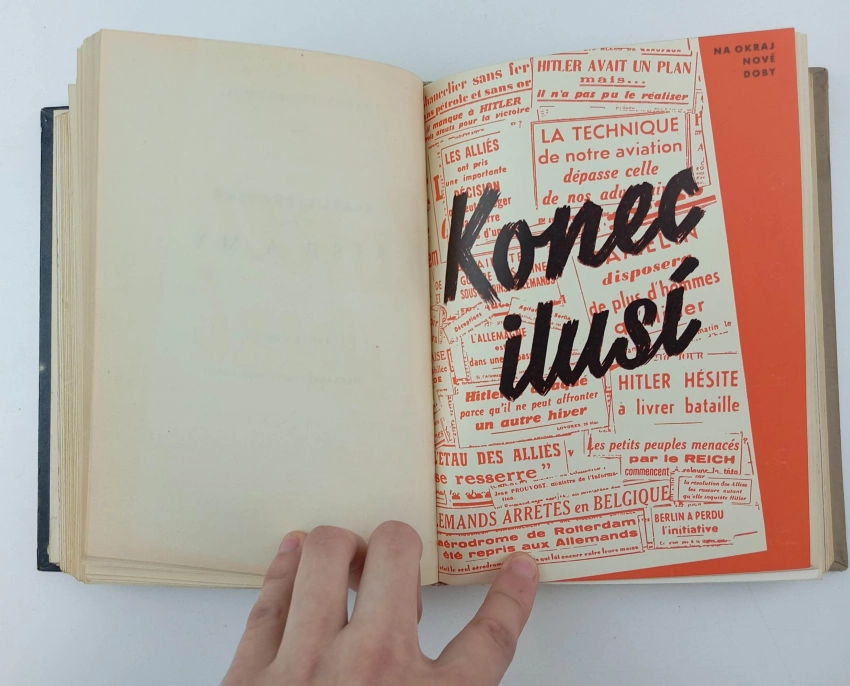 NA OKRAJ
NOVÉ
DOBY
Konec
ilusí
chancelier sans fer
sans pétrole et sans or
manque à HITLER
atouts pour la victoire
HITLER AVAIT UN PLAN
mais...
il n'a pas pu le réaliser
LES ALLIÉS
ont pris
une importante
DÉCISION
LA TECHNIQUE
de notre aviation
dépasse celle
de nos
disposera
de plus d'hommes
L'ALLEMAGNE
dans une
Hitler
parce qu'il ne peut affronter
un autre hiver
HITLER HÉSITE
à livrer bataille
L'ÉTAU DES ALLIÉS
se resserre”
Jean PROUVOST, ministre de l'Informa-
tion.
Les petits peuples menacés
par le REICH
commencent à relever la tête
car
la résolution des Alliés
les rassure autant
qu'elle inquiète Hitler
ARRÊTÉS en BELGIQUE
BERLIN A PERDU
l'initiative
aérodrome de Rotterdam
été repris aux Allemands